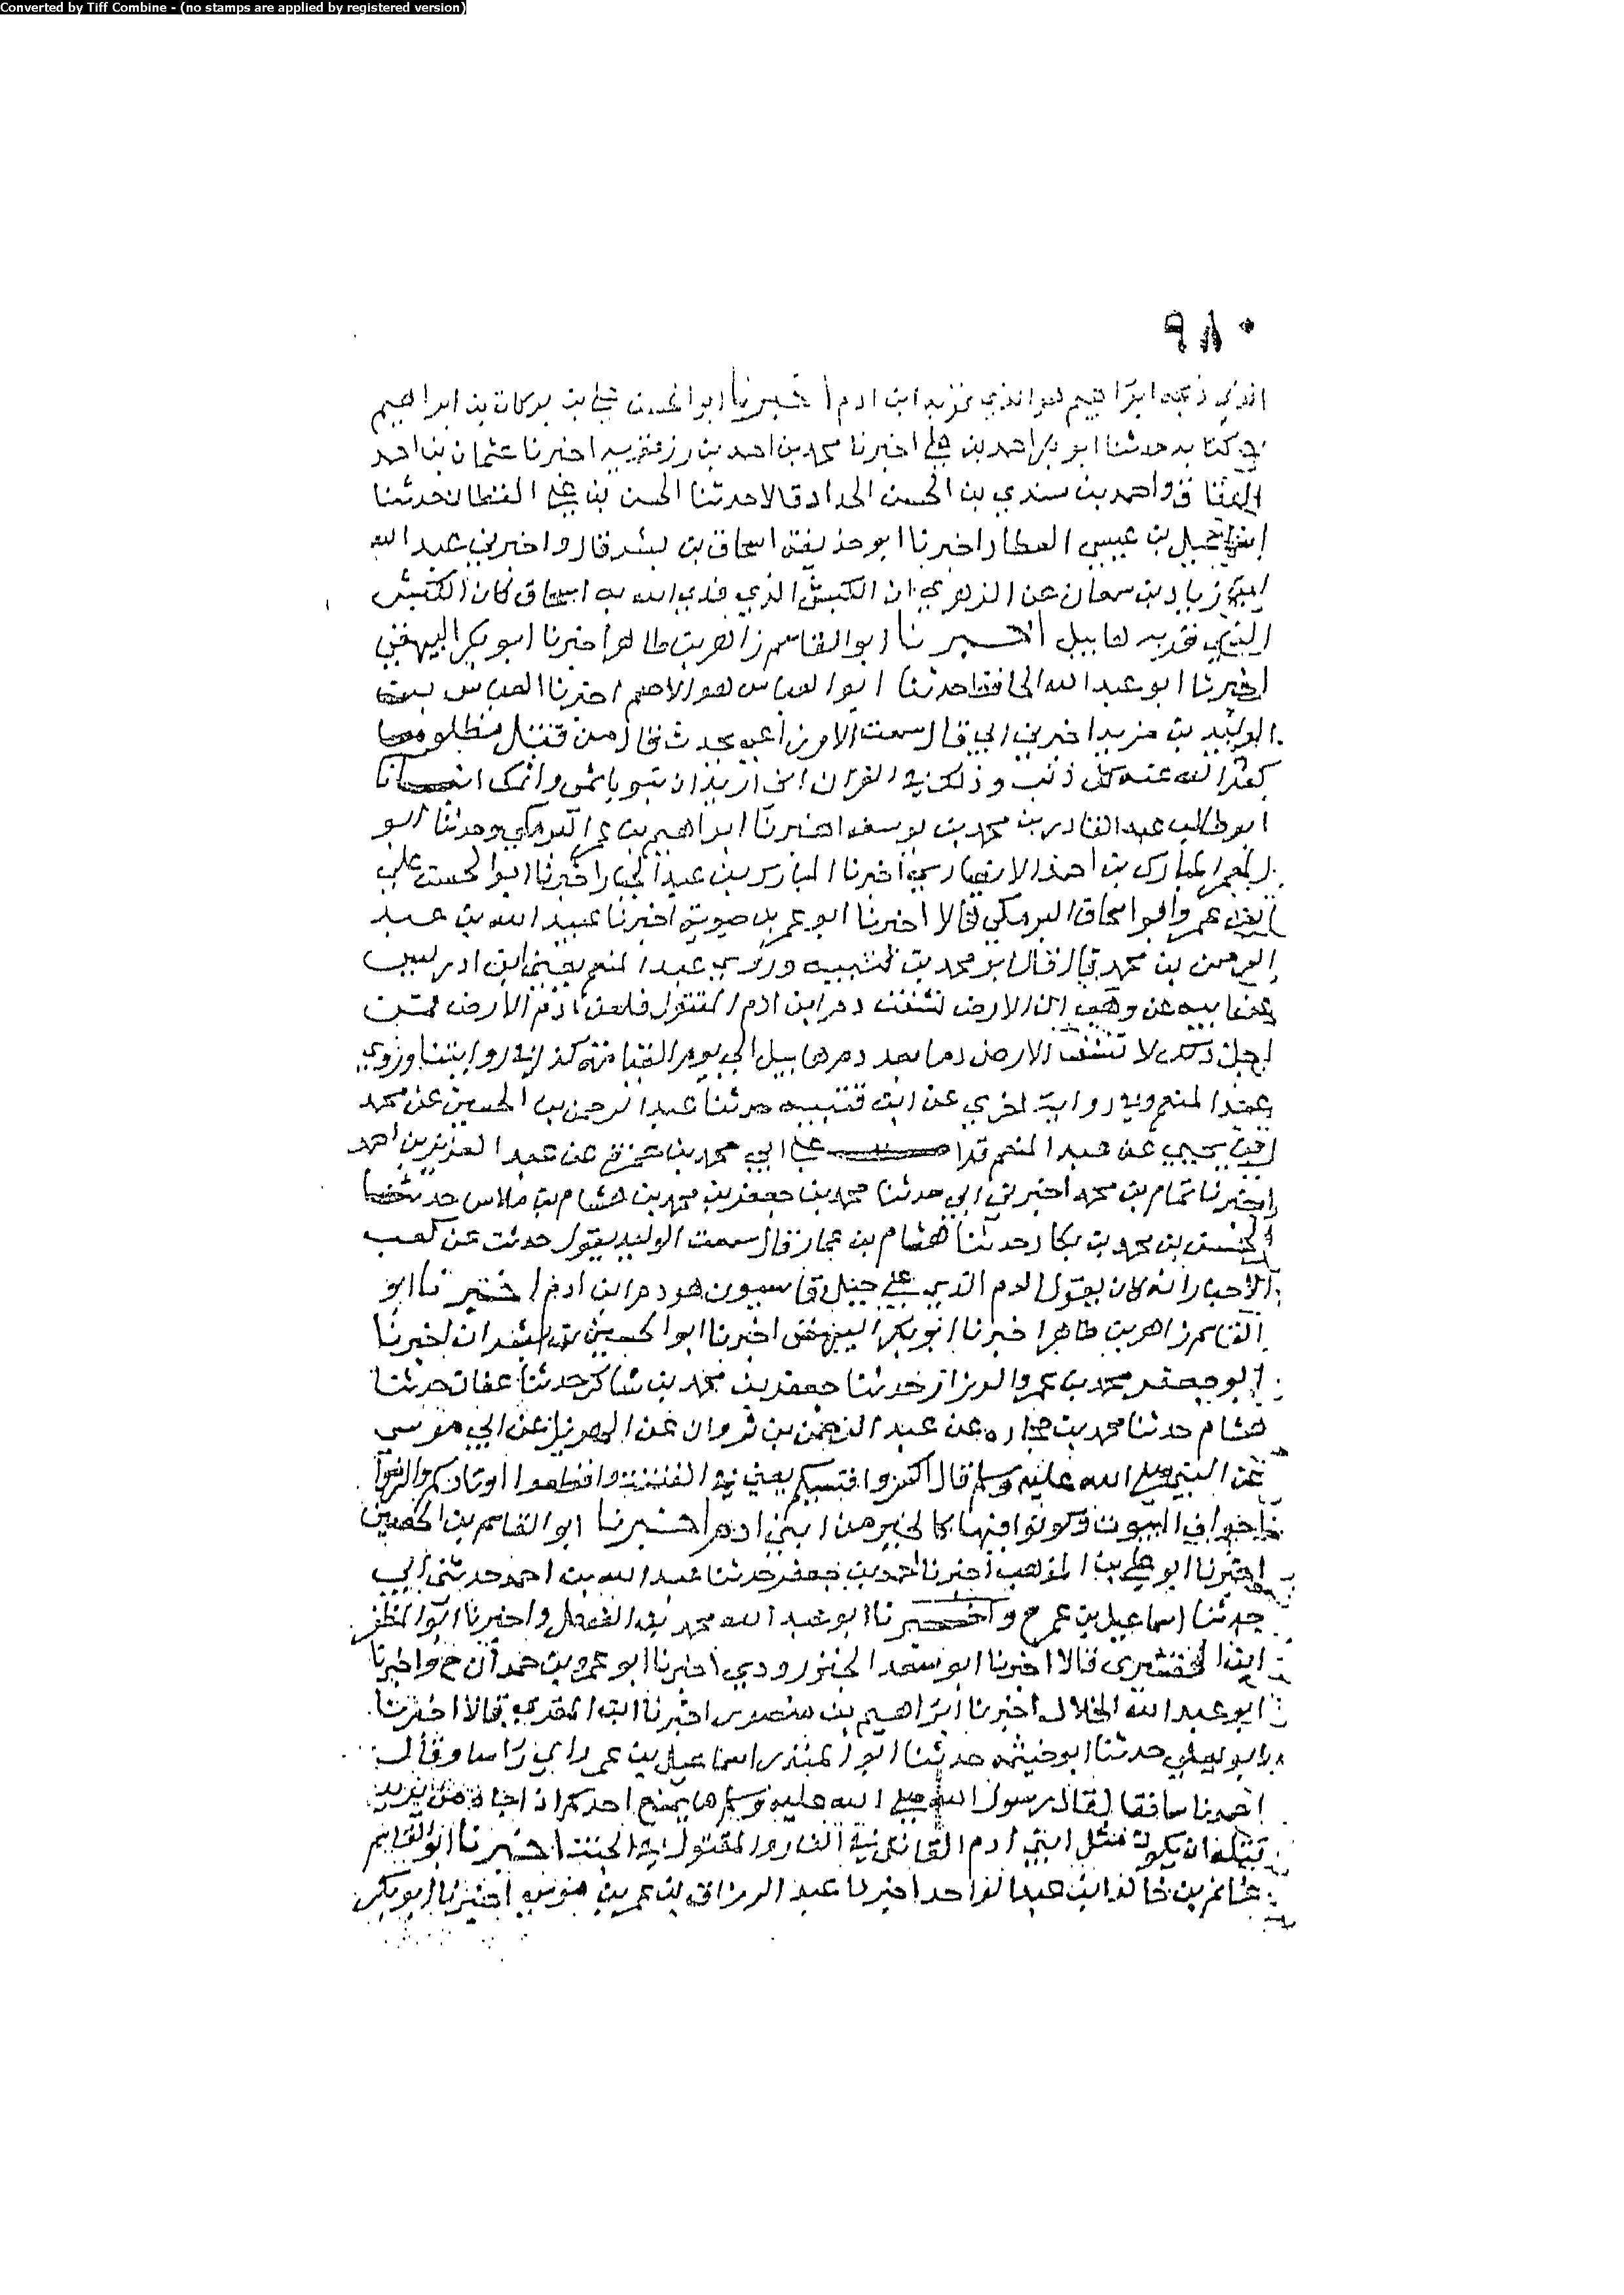 Converted by Tiff Combine - (no stamps are applied by registered version)
٩٨٠
الذي ذبحه ابراهيم هو الذي قربه ابن ادم اخبرنا ابو الحسن علي بن بركات بن ابراهيم
في كتابه حدثنا ابو بكر احمد بن علي اخبرنا محمد بن احمد بن رزقويه اخبرنا عثمان بن احمد
الدقاق واحمد بن سندي بن الحسن الحداد قالا حدثنا الحسن بن علي القطان حدثنا
اسماعيل بن عيسى العطار اخبرنا ابو حذيفة اسحاق بن بشر قال واخبرني عبد الله
ابن زياد بن سمعان عن الزهري ان الكبش الذي فدي الله به اسحاق كان الكبش
الذي قربه هابيل اخبرنا ابو القاسم زاهر بن طاهر اخبرنا ابو بكر البيهقي
اخبرنا ابو عبد الله الحافظ حدثنا ابو العباس هو الاصم اخبرنا العباس بن
الوليد بن مزيد اخبرني ابي قال سمعت الاوزاعي يحدث قال من قتل مظلوما
كفر الله عنه كل ذنب وذلك في القران اني اريد ان تبوء باثمي واثمك انبانا
ابو طالب عبد القادر بن محمد بن يوسف اخبرنا ابراهيم بن عمر البرمكي وحدثنا ابو
المعمر المبارك بن احمد الانصاري اخبرنا المبارك بن عبد الجبار اخبرنا ابو الحسن علي
ابن عمر وابو اسحاق البرمكي قالا اخبرنا ابو عمر بن حيويه اخبرنا عبيد الله بن عبد
الرحمن بن محمد قال قال ابو محمد بن قتيبه وروي عبد المنعم يعني ابن ادريس
عن ابيه عن وهب ان الارض نشفت دم ابن ادم المقتول فلعن ادم الارض فمن
اجل ذلك لا تنشف الارض دما بعد دم هابيل الي يوم القيامة كذا في روايتنا وروي
عبد المنعم وفي رواية اخري عن ابن قتيبه حدثنا عبد الرحمن بن الحسين عن محمد
ابن يحيي عن عبد المنعم قرات علي ابي محمد بن حمزة عن عبد العزيز بن احمد
اخبرنا تمام بن محمد اخبرني ابي حدثنا محمد بن جعفر بن محمد بن هشام بن ملاس حدثنا
الحسن بن محمد بن بكار حدثنا هشام بن عمار قال سمعت الوليد يقول حدثت عن كعب
الاحبار انه كان يقول الدم الذي علي جبل قاسيون هو دم ابن ادم اخبرنا ابو
القاسم زاهر بن طاهر اخبرنا ابو بكر البيهقي اخبرنا ابو الحسين بن بشران اخبرنا
ابو جعفر محمد بن عمرو الرزاز حدثنا جعفر بن محمد بن شاكر حدثنا عفان حدثنا
هشام حدثنا محمد بن جحاده عن عبد الرحمن بن ثروان عن الهزيل عن ابي موسي
عن النبي صلي الله عليه وسلم قال اكسروا قسيكم يعني في الفتنة واقطعوا اوتاركم والزموا
اجواف البيوت وكونوا فيها كالخير من ابني ادم اخبرنا ابو القاسم بن الحصين
اخبرنا ابو علي بن المذهب اخبرنا احمد بن جعفر حدثنا عبد الله بن احمد حدثني ابي
حدثنا اسماعيل بن عمر ح واخبرنا ابو عبد الله محمد بن الفضل واخبرنا ابو المظفر
ابن القشيري قالا اخبرنا ابو سعد الجنزرودي اخبرنا ابو عمرو بن حمدان ح واخبرنا
ابو عبد الله الخلال اخبرنا ابراهيم بن منصور اخبرنا ابن المقري قالا اخبرنا
ابو يعلي حدثنا ابو خيثمه حدثنا ابو المنذر اسماعيل بن عمر راي راسا وقال
احمدنا ساقفا لقال رسول الله صلي الله عليه وسلم ما يمنع احدكم اذا جاه من يريد
قتله ان يكون مثل ابني ادم القاتل في النار والمقتول في الجنة اخبرنا ابو القاسم
غانم بن خالد ابن عبد الواحد اخبرنا عبد الرزاق بن عمر بن موسي اخبرنا ابو بكر